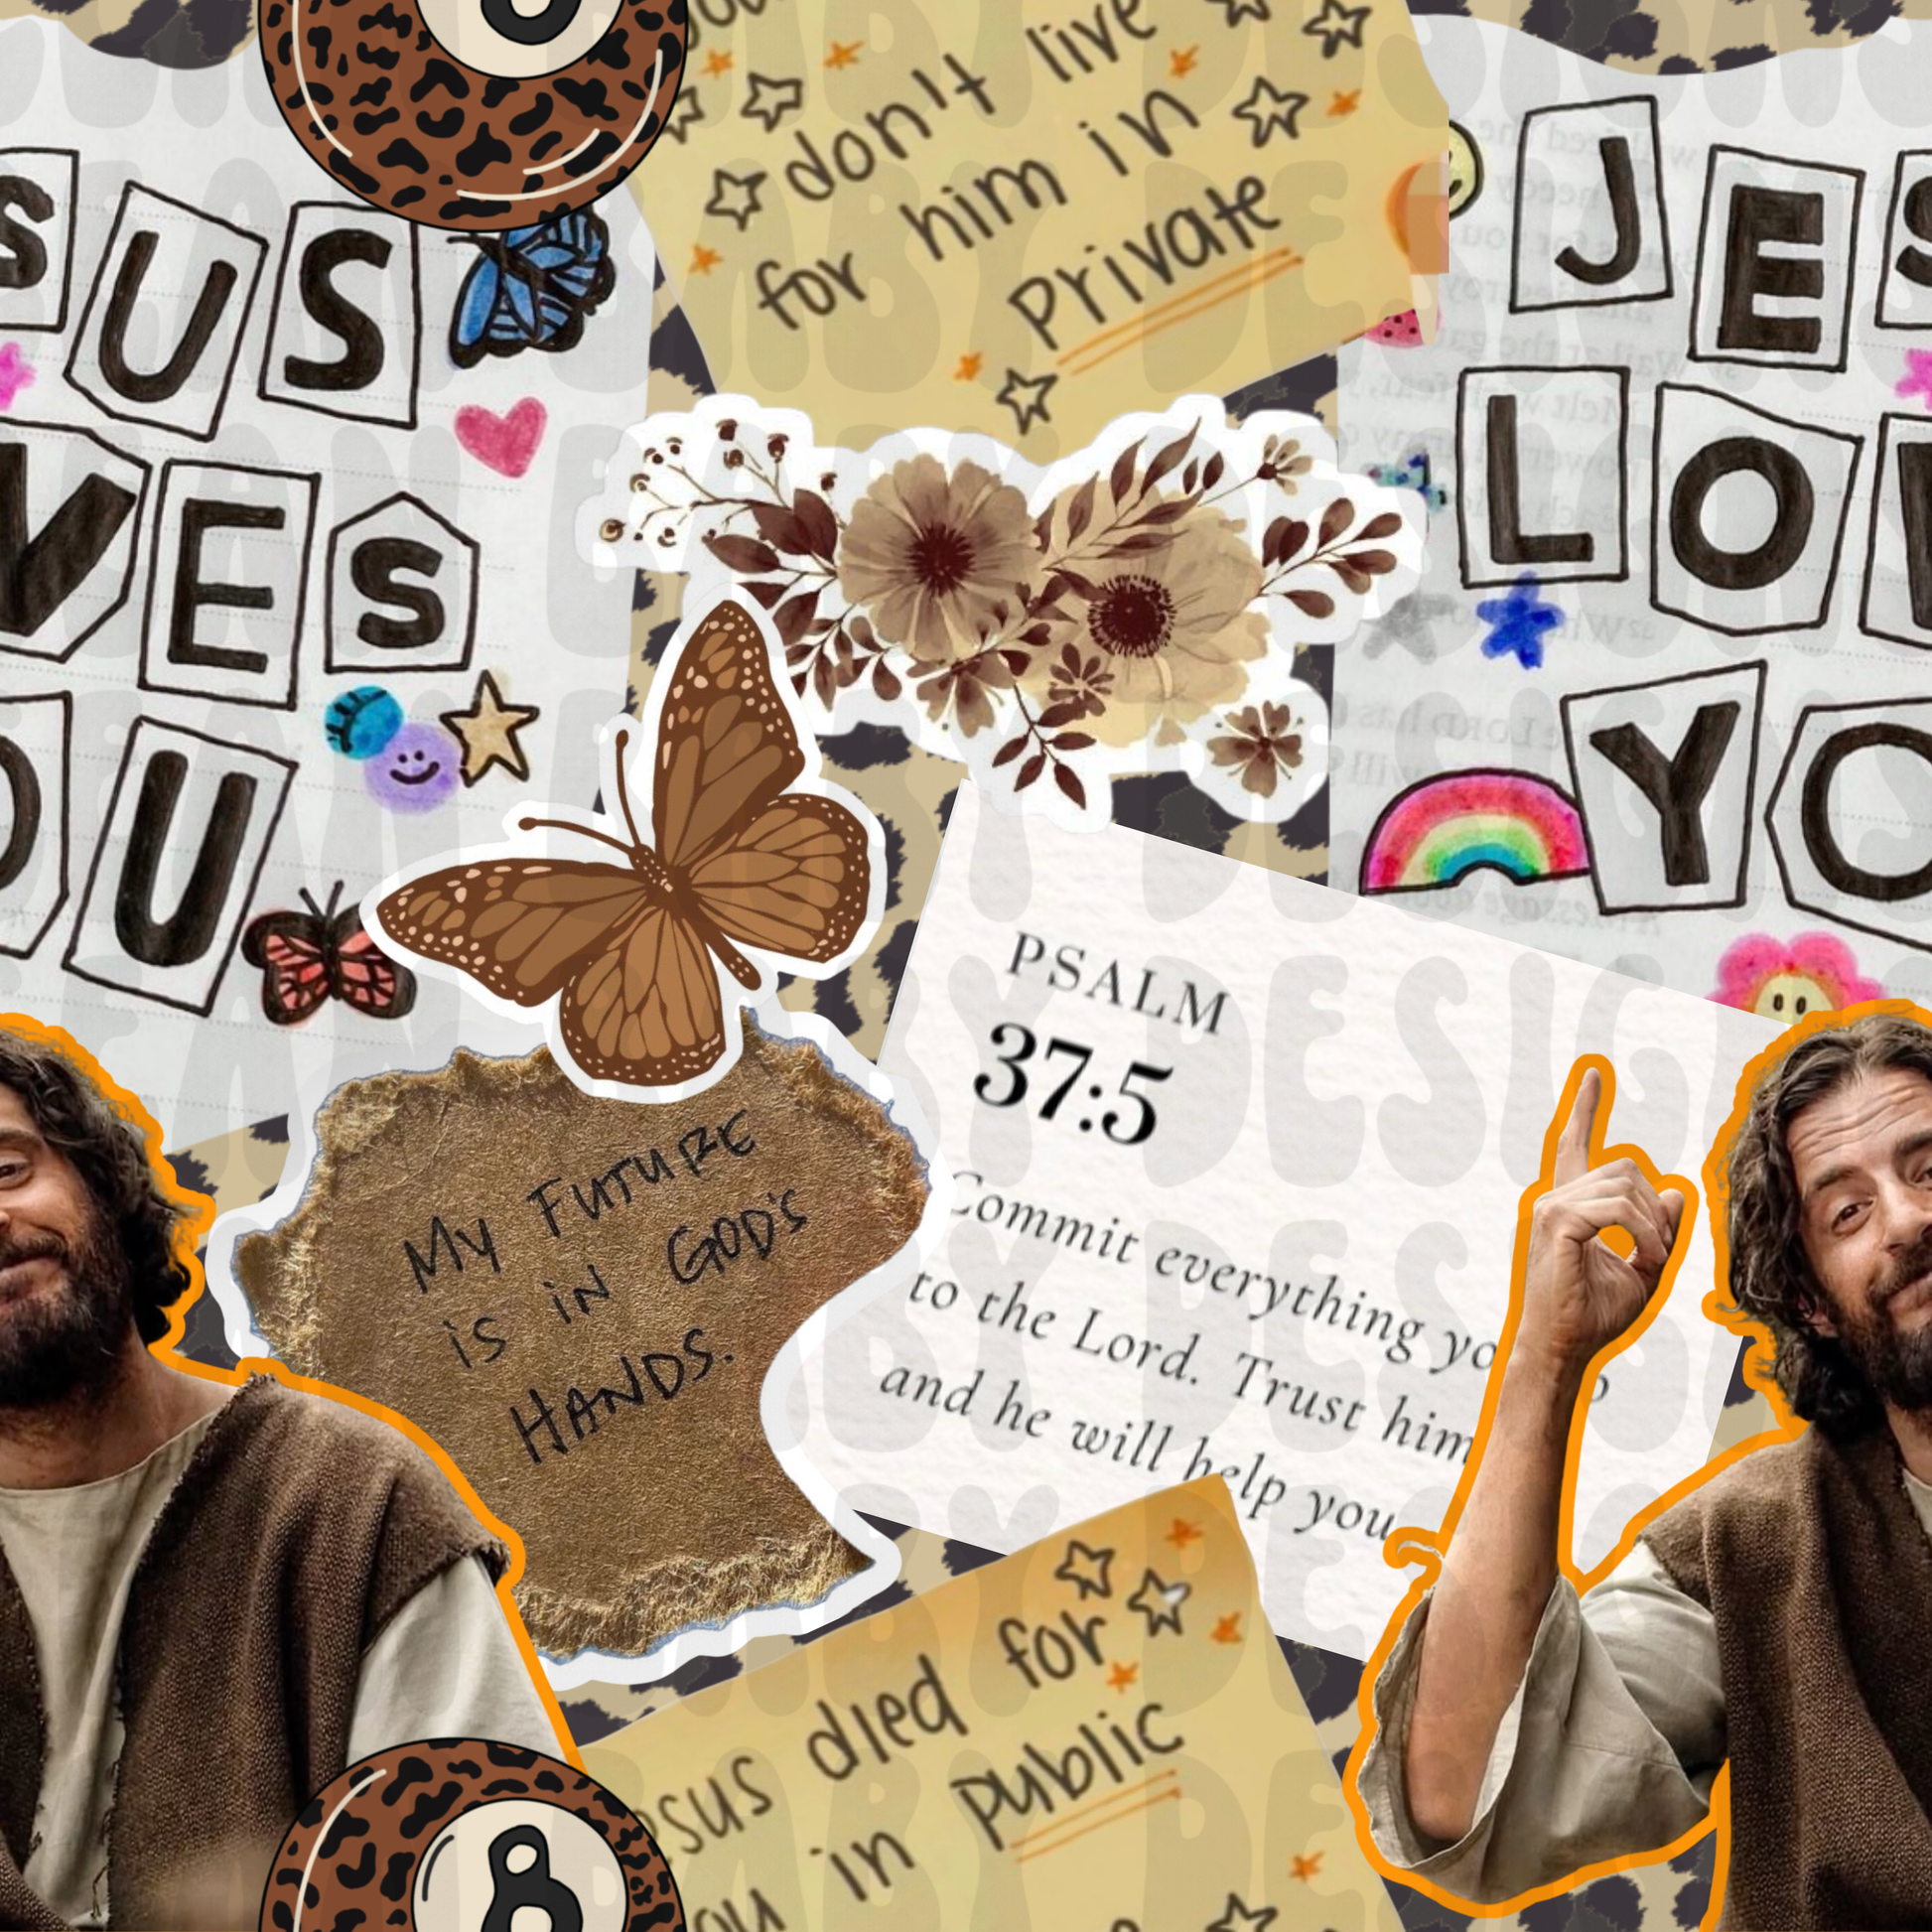 don't live
for him in
Private
SUS
VES
OU
JES
LOV
YO
PSALM
37:5
Commit everything yo
to the Lord. Trust him
and he will help you
My FUTURE
is iN GOD'S
HANDS.
esus died for
ou in public
8
BEAN BABY DESIGNS